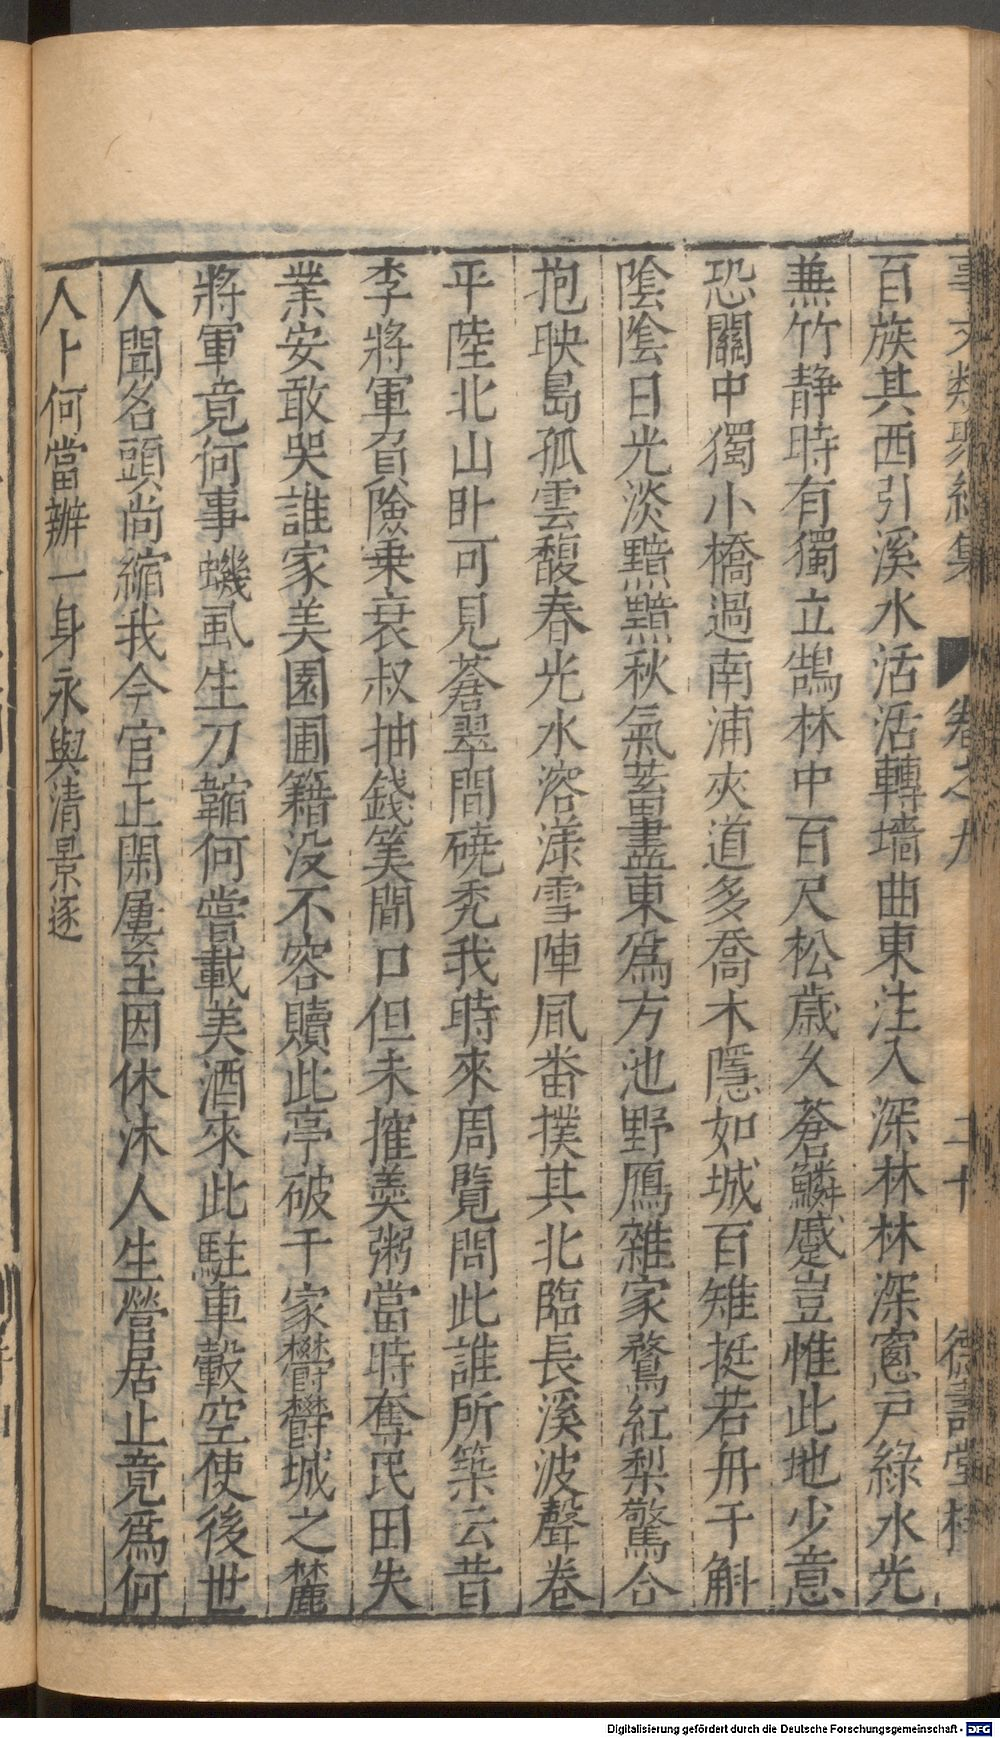 事文類聚續集 卷之九 二十 德壽堂梓
百族其西引溪水活活轉墻曲東注入深林林深窻戶綠水光
兼竹静時有獨立鵠林中百尺松歲久蒼鱗蹙豈惟此地少意
恐關中獨小橋過南浦夾道多喬木隱如城百雉挺若舟千斛
陰陰日光淡黯黯秋氣蓄盡東爲方池野鴈雜家鶩紅梨驚合
抱映島孤雲馥春光水溶漾雪陣風畨撲其北臨長溪波聲卷
平陸北山卧可見蒼翠間磽禿我時來周覽問此誰所築云昔
李將軍負險乗衰叔抽錢筭間口但未搉羮粥當時奪民田失
業安敢哭誰家美園圃籍没不容贖此亭破千家欝欝城之麓
將軍竟何事蟣虱生刀韣何嘗載美酒來此駐車轂空使後世
人聞名頭尚縮我今官正閑屢至因休沐人生營居止竟爲何
人卜何當辦一身永與清景逐
Digitalisierung gefördert durch die Deutsche Forschungsgemeinschaft - DFG